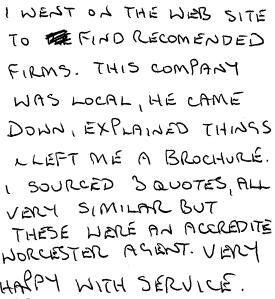 I WENT ON THE WEB SITE
TO FIND RECOMENDED
FIRMS. THIS COMPANY
WAS LOCAL, HE CAME
DOWN, EXPLAINED THINGS
& LEFT ME A BROCHURE.
I SOURCED 3 QUOTES, ALL
VERY SIMILAR BUT
THESE WERE AN ACCREDITE
WORCESTER AGENT. VERY
HAPPY WITH SERVICE.